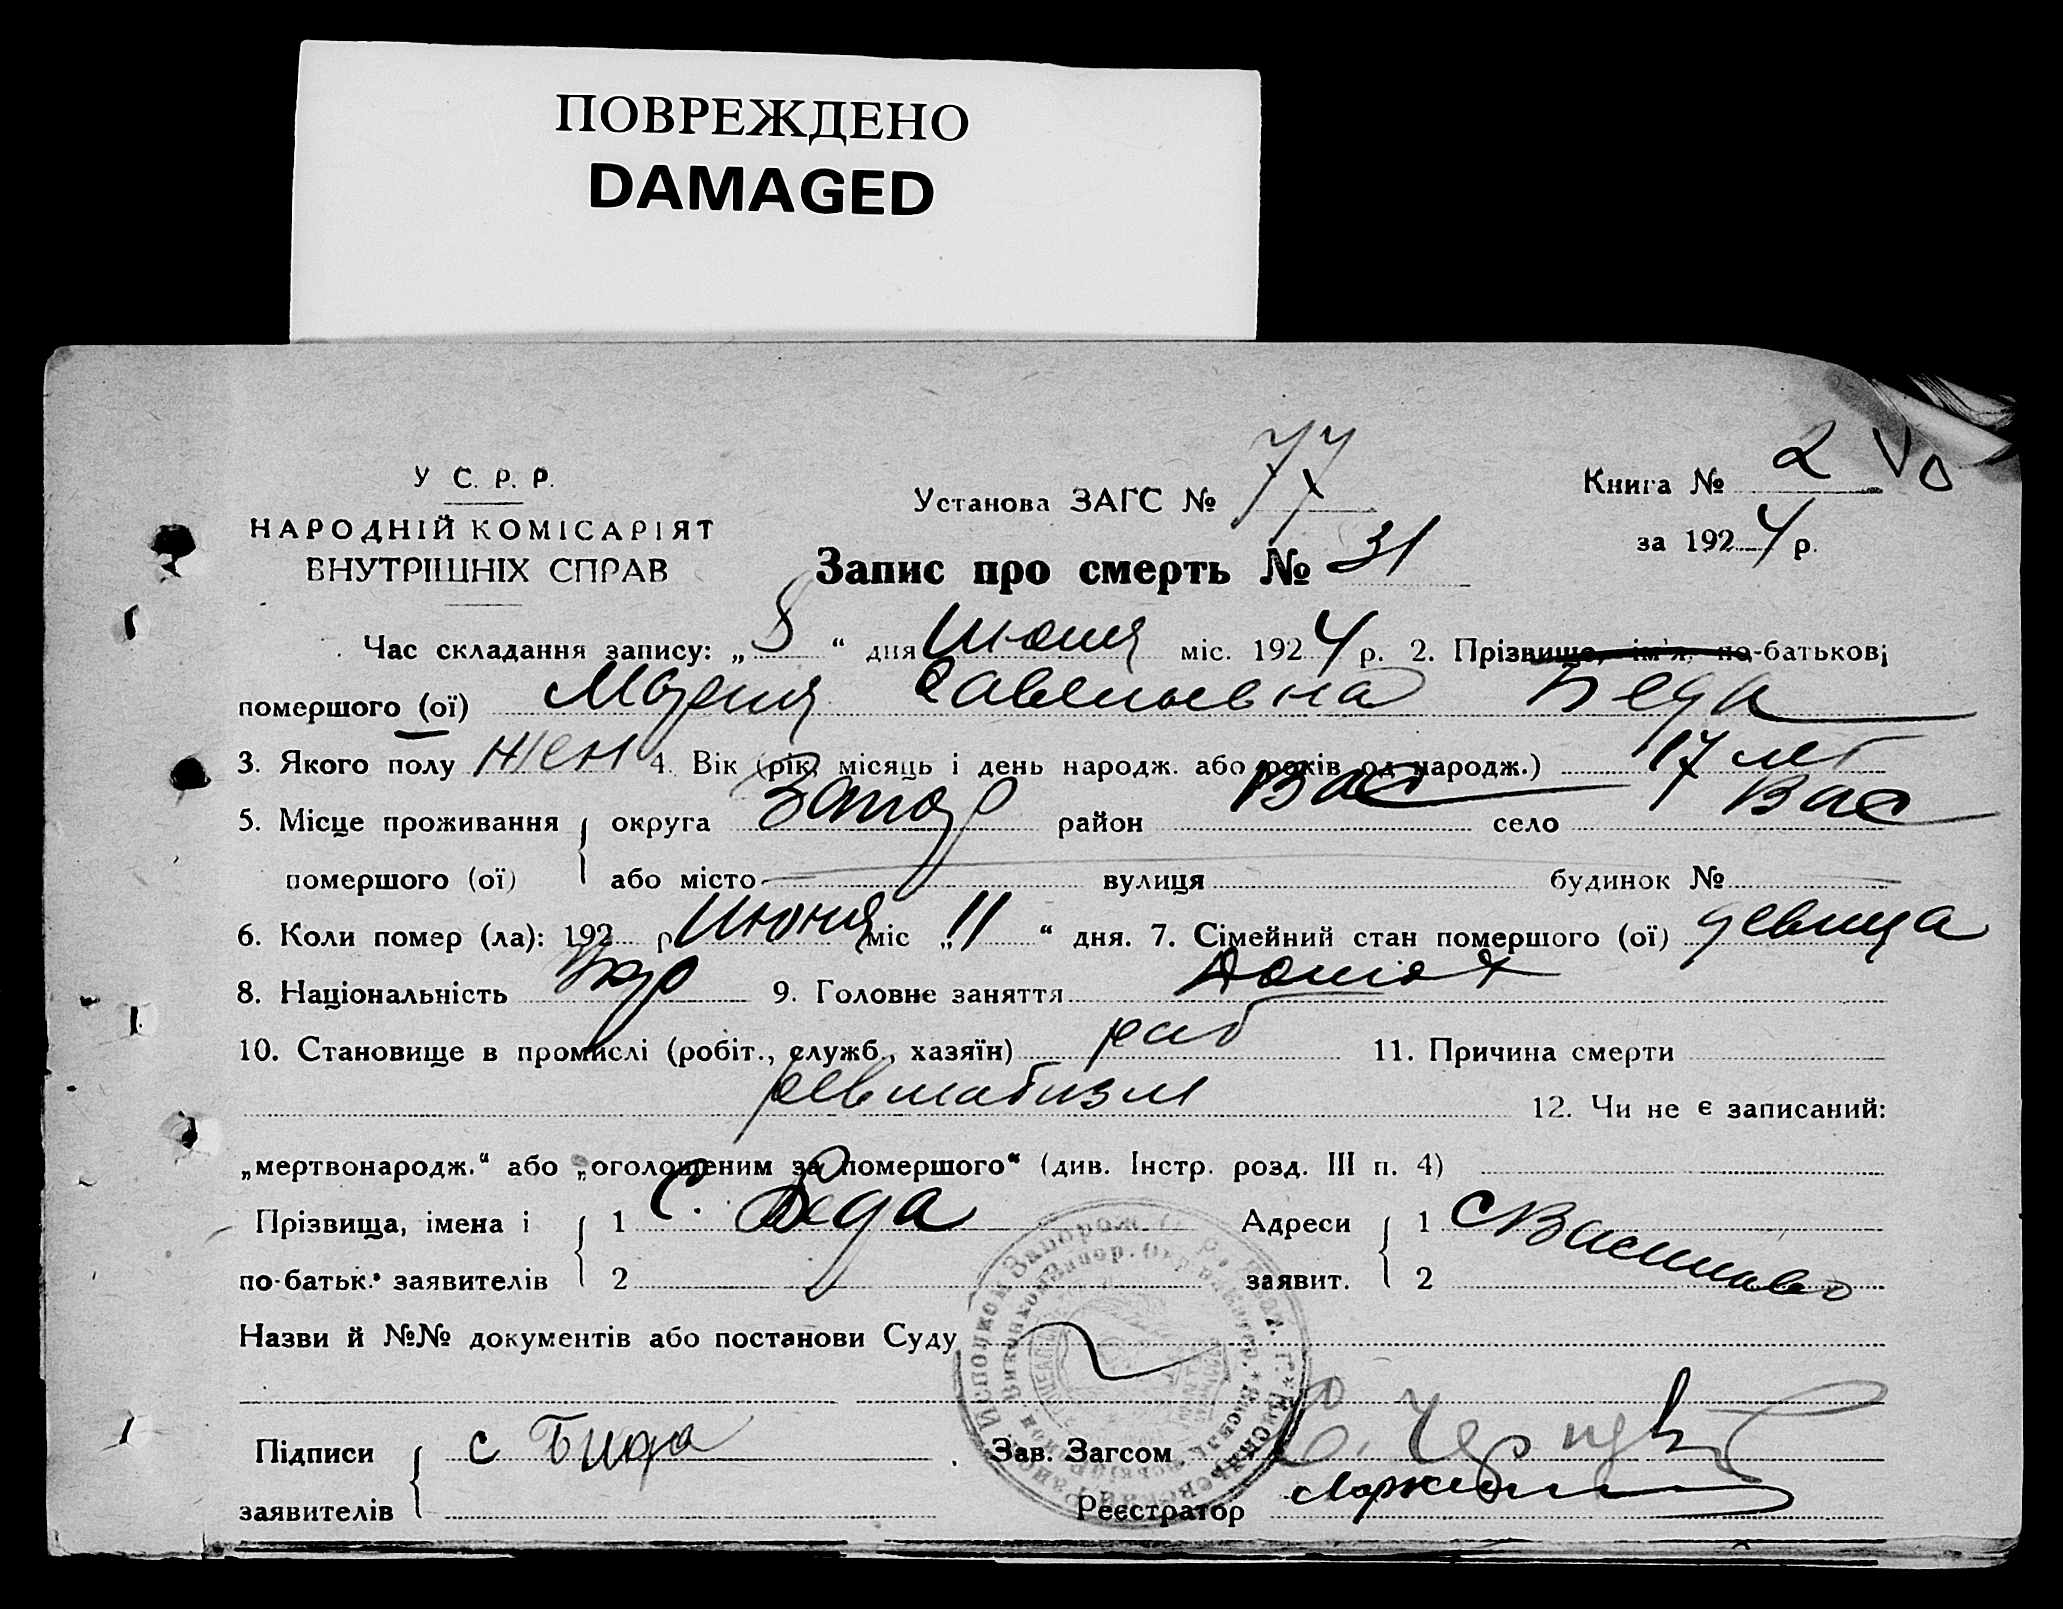 ПОВРЕЖДЕНО
DAMAGED
У С. Р. Р.
НАРОДНІЙ КОМІСАРІЯТ
ВНУТРІШНІХ СПРАВ
Установа ЗАГС № 77
Книга № 2
за 1924 р.
Запис про смерть № 31
Час складання запису: „8“ дня Июля міс. 1924 р. 2. Прізвище, ім'я, по-батькові
помершого (ої) Мария Савельевна Беда
3. Якого полу жен 4. Вік (рік, місяць і день народж. або років од народж.) 17 лет
5. Місце проживання округа Запор район Вас село Вас
помершого (ої) або місто вулиця будинок №
6. Коли помер (ла): 192 р Июня міс „11“ дня. 7. Сімейний стан помершого (ої) девица
8. Національність Укр 9. Головне заняття Домох
10. Становище в промислі (робіт., служб., хазяїн) раб 11. Причина смерти
ревматизм 12. Чи не є записаний:
„мертвонародж.“ або „оголошеним за помершого“ (див. Інстр. розд. III п. 4)
Прізвища, імена і 1 С. Беда Адреси 1 с Васильево
по-батьк. заявителів 2 заявит. 2
Назви й №№ документів або постанови Суду
Підписи с Бида Зав. Загсом
заявителів Реєстратор